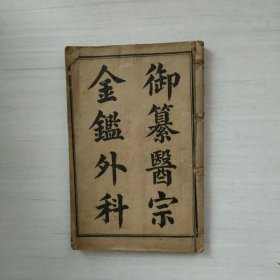 御纂醫宗
金鑑外科